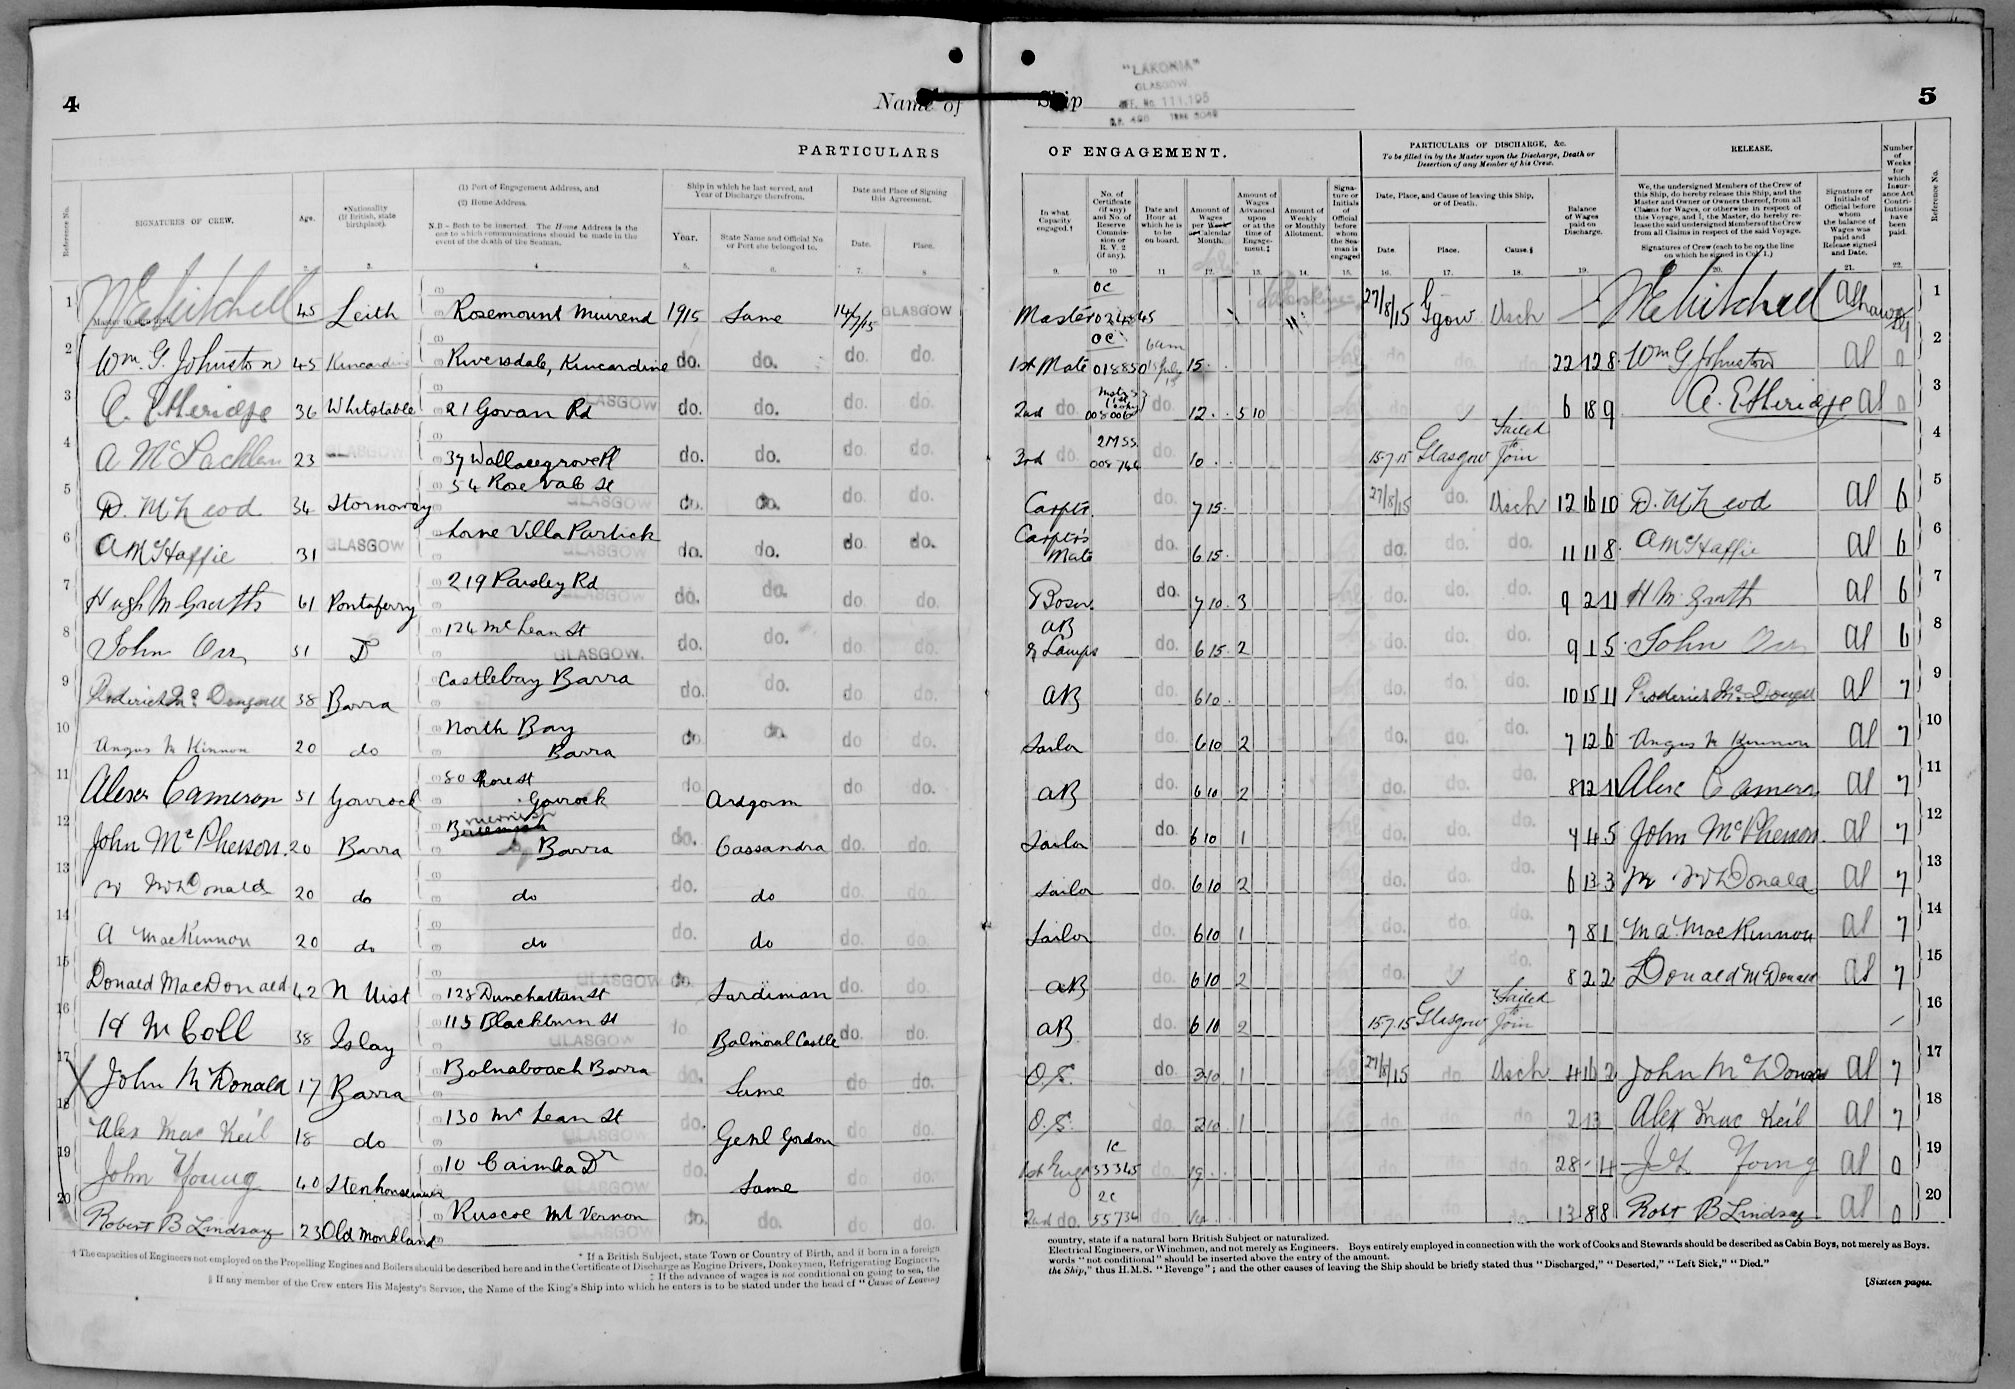 4
Name of Ship
"LAKONIA"
GLASGOW
OFF. No. 111,195
5
PARTICULARS OF ENGAGEMENT.
PARTICULARS OF DISCHARGE, &c.
To be filled in by the Master upon the Discharge, Death or Desertion of any Member of his Crew.
RELEASE.
Number of Weeks for which Insurance Act Contributions have been paid.
Reference No.
SIGNATURES OF CREW.
Age.
*Nationality (If British, state birthplace).
(1) Port of Engagement Address, and
(2) Home Address.
N.B - Both to be inserted. The Home Address is the one to which communications should be made in the event of the death of the Seaman.
Ship in which he last served, and Year of Discharge therefrom.
Year.
State Name and Official No. or Port she belonged to.
Date and Place of Signing this Agreement.
Date.
Place.
In what Capacity engaged.†
No. of Certificate (if any) and No. of Reserve Commission or R. V. 2 (if any).
Date and Hour at which he is to be on board.
Amount of Wages per Week or Calendar Month.
Amount of Wages Advanced upon or at the time of Engagement.‡
Amount of Weekly or Monthly Allotment.
Signature or Initials of Official before whom the Seaman is engaged
Date, Place, and Cause of leaving this Ship, or of Death.
Date.
Place.
Cause.§
Balance of Wages paid on Discharge.
We, the undersigned Members of the Crew of this Ship, do hereby release this Ship, and the Master and Owner or Owners thereof, from all Claims for Wages, or otherwise in respect of this Voyage, and I, the Master, do hereby release the said undersigned Members of the Crew from all Claims in respect of the said Voyage.
Signatures of Crew (each to be on the line on which he signed in Col. 1.)
Signature or Initials of Official before whom the balance of Wages was paid and Release signed and Date.
Reference No.
1 Mitchell 45 Leith Rosemount Muirend 1915 Same 14/7/15 GLASGOW Master 27/8/15 Ggow Dsch Mitchell 1
2 Wm. G. Johnston 45 Kincardine Riversdale, Kincardine do. do. do. do. 1st Mate 018850 15 22 12 8 Wm G Johnston al 0 2
3 A. Etheridge 36 Whitstable 21 Govan Rd GLASGOW do. do. do. do. 2nd do. do. 12 5 10 6 18 9 A. Etheridge al 0 3
4 A McLachlan 23 GLASGOW 37 Wallacegrove Pl do. do. do. do. 3rd do. 008744 do. 10 15.7.15 Glasgow Failed to Join 4
5 D. McLeod 34 Stornoway 54 Rose Vale St GLASGOW do. do. do. do. Carptr. do. 7 15 27/8/15 do. Dsch 12 16 10 D. McLeod al 6 5
6 A McHaffie 31 GLASGOW Lorne Villa Partick GLASGOW do. do. do. do. Carptr's Mate do. 6 15 do. do. do. 11 11 8 A McHaffie al 6 6
7 Hugh McGrath 61 Portaferry 219 Paisley Rd GLASGOW do. do. do. do. Bosn. do. 7 10 3 do. do. do. 9 2 11 H McGrath al 6 7
8 John Orr 51 124 McLean St GLASGOW. do. do. do. do. AB & Lamps do. 6 15 2 do. do. do. 9 1 5 John Orr al 6 8
9 Roderick McDougall 38 Barra Castlebay Barra do. do. do. do. AB do. 6 10 do. do. do. 10 15 11 Roderick McDougall al 7 9
10 Angus McKinnon 20 do North Bay Barra do do. do do. Sailor do. 6 10 2 do. do. do. 7 12 6 Angus McKinnon al 7 10
11 Alexr Cameron 51 Gourock 80 Shore St Gourock do. Ardgorm do do. AB do. 6 10 2 do. do. do. 8 12 11 Alexr Cameron al 7 11
12 John McPherson. 20 Barra Barra do. Cassandra do. do. Sailor do. 6 10 1 do. do. do. 7 4 5 John McPherson. al 7 12
13 McDonald 20 do do do. do do. do. Sailor do. 6 10 2 do. do. do. 6 13 3 McDonald al 7 13
14 A MacKinnon 20 do do do. do do. do. Sailor do. 6 10 1 do. do. do. 7 8 1 MacKinnon al 7 14
15 Donald MacDonald 42 N Uist 128 Dunchattan St GLASGOW do. Sardinian do. do. AB do. 6 10 2 do. do. 8 2 2 Donald McDonald al 7 15
16 H McColl 38 Islay 115 Blackburn St GLASGOW do. Balmoral Castle do. do. AB do. 6 10 2 15.7.15 Glasgow Failed to Join 16
17 John McDonald 17 Barra Barra do. Same do do. O.S. do. 3 10 1 27/8/15 do Dsch 4 16 2 John McDonald al 7 17
18 Alex MacNeil 18 do 130 McLean St GLASGOW do. Genl Gordon do do. O.S. do. 2 10 1 do do do 2 13 Alex MacNeil al 7 18
19 John Young 40 Stenhousemuir 10 Cairnlea Dr GLASGOW do. Same do. do. 1st Engr 1C 33345 do. 19 28 - 4 Young al 0 19
20 Robert B Lindsay 23 Old Monkland Ruscoe Mt Vernon GLASGOW do. do. do. do. 2nd do. 2C 55734 do. 13 8 8 Robt B Lindsay al 0 20
* If a British Subject, state Town or Country of Birth, and if born in a foreign country, state if a natural born British Subject or naturalized.
† The capacities of Engineers not employed on the Propelling Engines and Boilers should be described here and in the Certificate of Discharge as Engine Drivers, Donkeymen, Refrigerating Engineers, Electrical Engineers, or Winchmen, and not merely as Engineers. Boys entirely employed in connection with the work of Cooks and Stewards should be described as Cabin Boys, not merely as Boys.
‡ If the advance of wages is not conditional on going to sea, the words "not conditional" should be inserted above the entry of the amount.
§ If any member of the Crew enters His Majesty's Service, the Name of the King's Ship into which he enters is to be stated under the head of "Cause of Leaving the Ship," thus H.M.S. "Revenge"; and the other causes of leaving the Ship should be briefly stated thus "Discharged," "Deserted," "Left Sick," "Died."
[Sixteen pages.